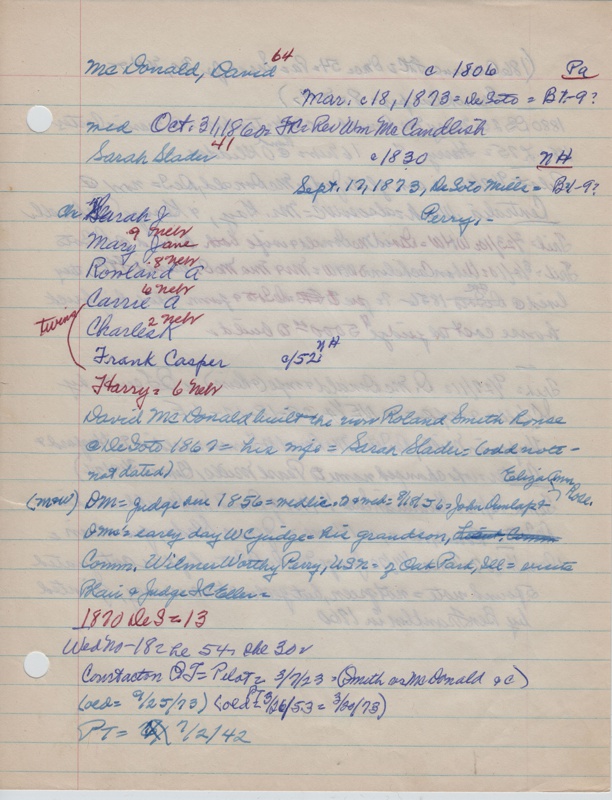 McDonald, David 64 c 1806 Pa
Mar. c18, 1873 = DeSoto = Bt-9?
med Oct. 31, 1860 = Rev Wm McCandlish
Sarah Slader 41 c/1830 NH
Sept. 17, 1873, DeSoto Mills = Bt-9?
Ch Sarah J Perry, -
Mary Jane 9 Nebr
Rowland A 8 Nebr
Carrie A 6 Nebr
twins Charles K 2 Nebr
Frank Casper c/52 NH
Harry = 6 Nebr
David McDonald built the now Roland Smith House
@ DeSoto 1867 = his wife = Sarah Slader = (odd note -
not dated) Eliza Ann
(M&W) DM = Judge 1856 = John Dunlap &
DM's early day WC judge = His grandson, Lieut. Comm
Comm. Wilmer Worthy Perry, USN = of Oak Park, Ill = visits
Blair & Judge I C Eller =
1870 DeS = 13
Wed No - 18 = he 54, she 30
Constacton QT = Pilot = 3/7/23 = (Smith as McDonald &c)
(old = 9/25/73) (old PT = 3/26/53 = 3/20/73)
PT = 7/2/42